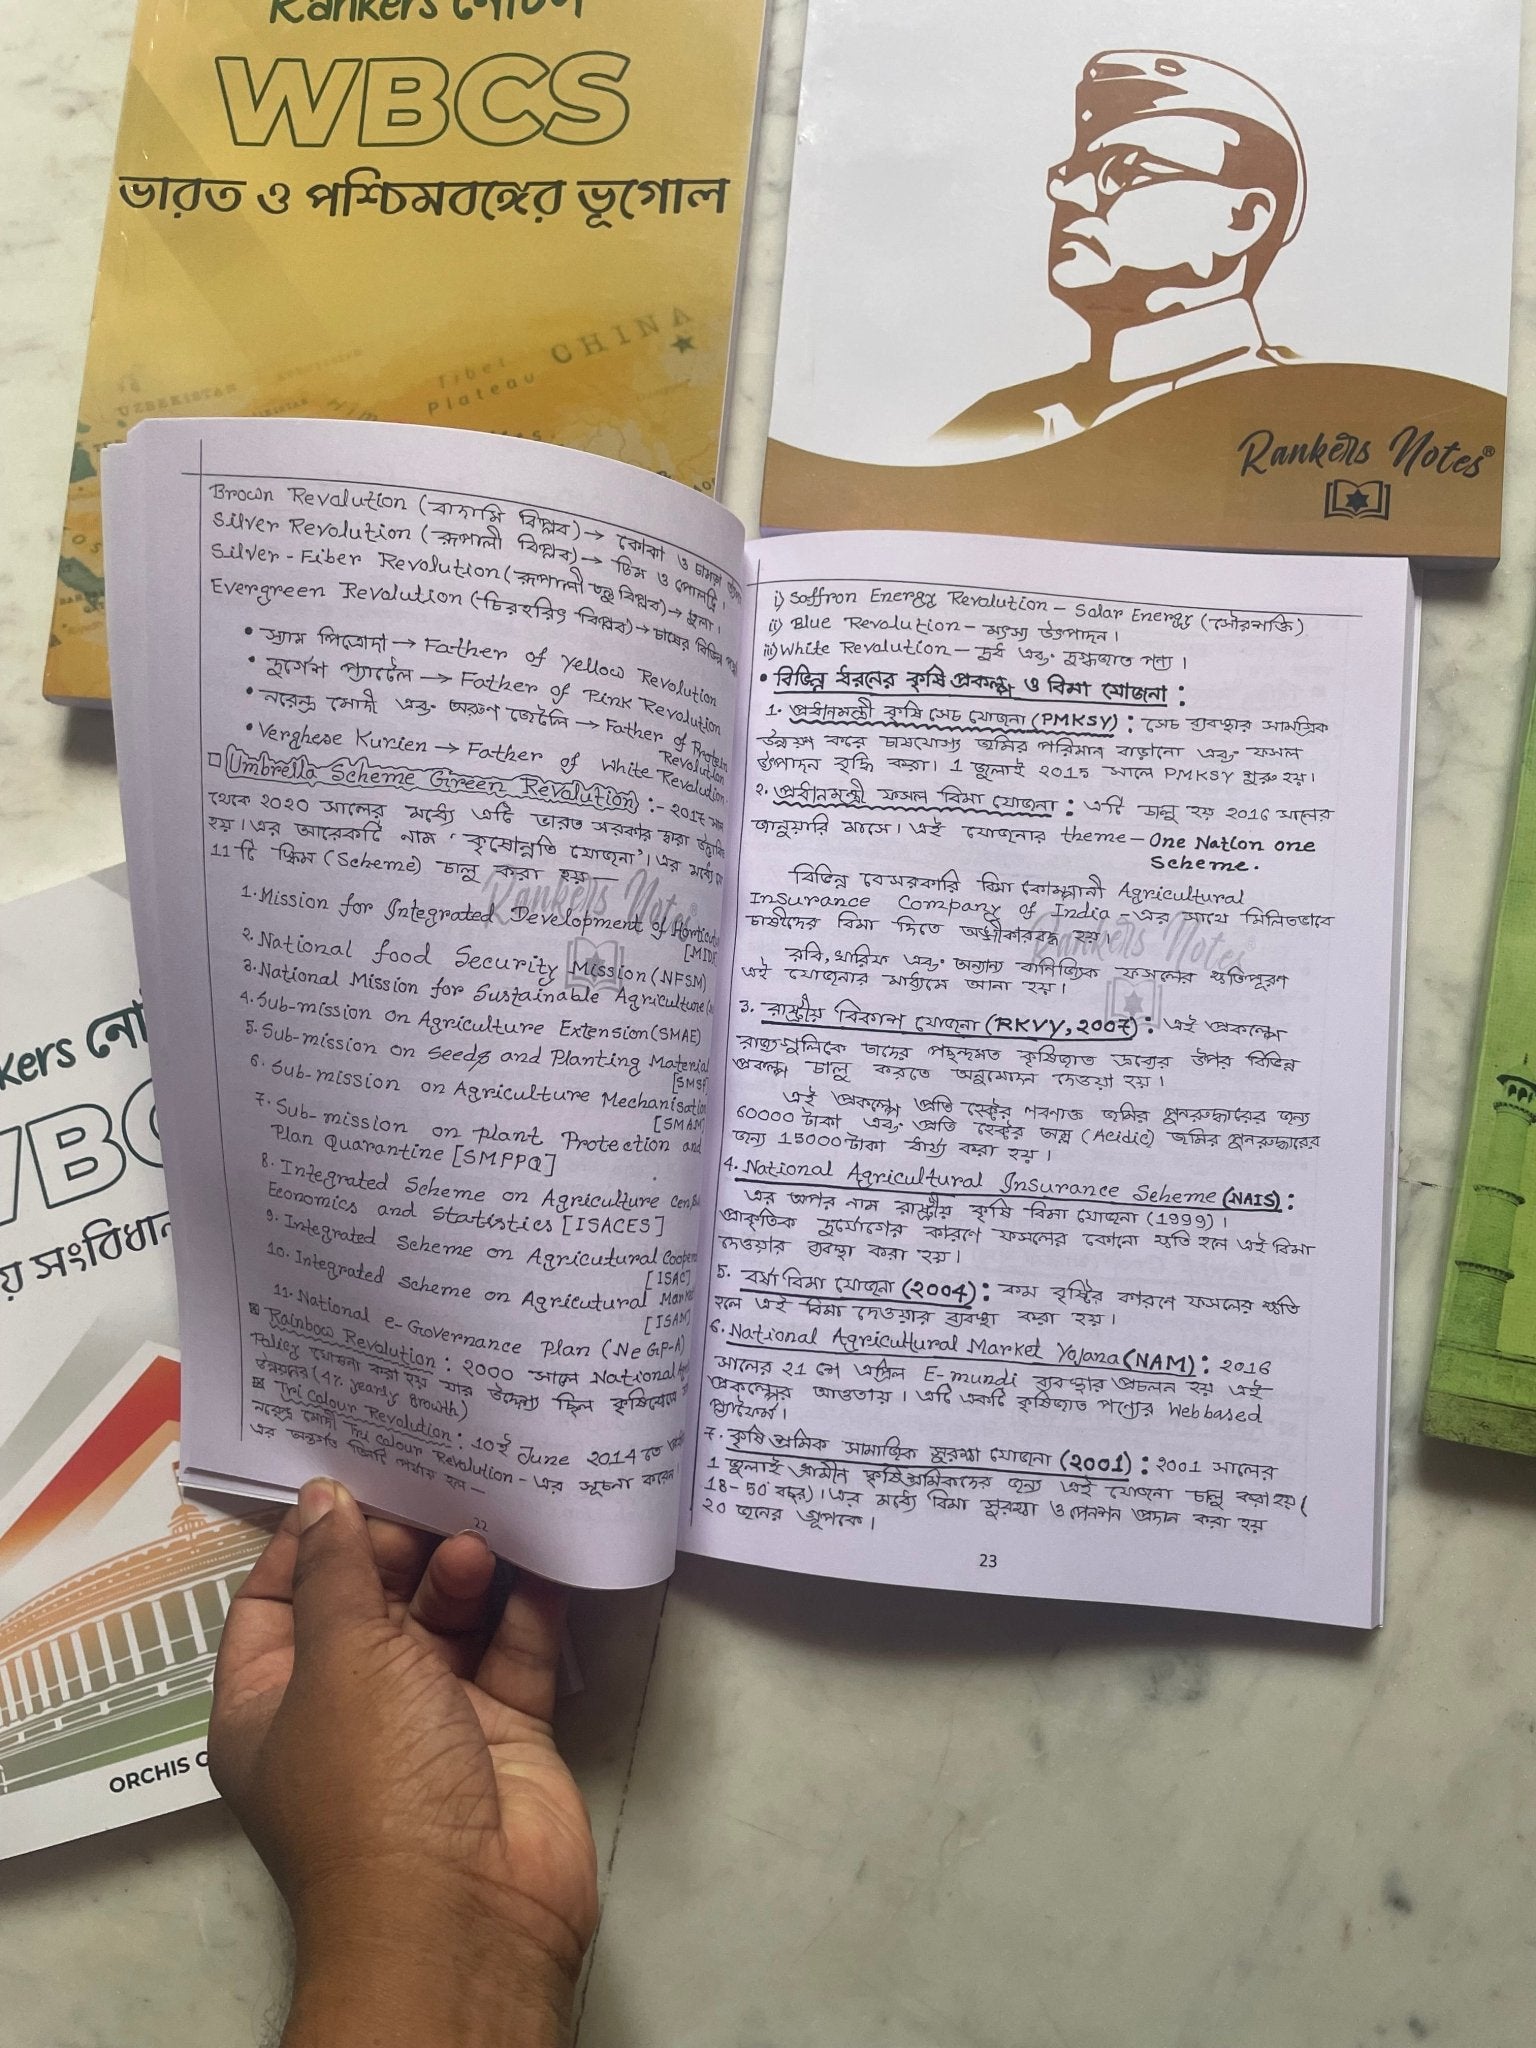 Rankers নোটস
WBCS
ভারত ও পশ্চিমবঙ্গের ভূগোল
CHINA
Tibet
Plateau
UZBEKISTAN
Rankers Notes®
Brown Revolution (বাদামি বিপ্লব) → কোকো ও চামড়া
Silver Revolution (রূপালী বিপ্লব) → ডিম ও পোলট্রি।
Silver-Fiber Revolution (রূপালী তন্তু বিপ্লব) → তুলা।
Evergreen Revolution (চিরহরিৎ বিপ্লব) → চাষের বিভিন্ন
• স্যাম পিত্রোদা → Father of Yellow Revolution
• দুর্গেশ প্যাটেল → Father of Pink Revolution
• নরেন্দ্র মোদী এবং অরুণ জেটলি → Father of Protein
Revolution
• Verghese Kurien → Father of White Revolution.
□ Umbrella Scheme Green Revolution :- 2017 সাল
থেকে 2020 সালের মধ্যে এটি ভারত সরকার দ্বারা
হয়। এর আরেকটি নাম 'কৃষোন্নতি যোজনা'। এর মধ্যে
11 টি স্কিম (Scheme) চালু করা হয়—
1. Mission for Integrated Development of
2. National food Security Mission (NFSM)
3. National Mission for Sustainable Agriculture
4. Sub-mission on Agriculture Extension (SMAE)
5. Sub-mission on Seeds and Planting Material
6. Sub-mission on Agriculture Mechanisation
[SMAM]
7. Sub-mission on plant Protection and
Plan Quarantine [SMPPQ]
8. Integrated Scheme on Agriculture
Economics and Statistics [ISACES]
9. Integrated Scheme on Agricutural
[ISAC]
10. Integrated Scheme on Agricutural
[ISAM]
11. National e-Governance Plan (NeGP-A)
Rainbow Revolution : 2000 সালে National
Policy ঘোষনা করা হয় যার উদ্দেশ্য ছিল
উন্নয়নের (4% yearly growth)
Tri Colour Revolution : 10ই June 2014 তে
নরেন্দ্র মোদী Tri Colour Revolution - এর সূচনা করেন।
এর অন্তর্গত তিনটি পর্যায় হল—
22
i) Saffron Energy Revolution - Solar Energy (সৌরশক্তি)
ii) Blue Revolution - মৎস্য উৎপাদন।
iii) White Revolution - দুধ এবং দুগ্ধজাত পণ্য।
• বিভিন্ন ধরনের কৃষি প্রকল্প ও বিমা যোজনা :
1. প্রধানমন্ত্রী কৃষি সেচ যোজনা (PMKSY) : সেচ ব্যবস্থার সামগ্রিক
উন্নয়ন করে চাষযোগ্য জমির পরিমান বাড়ানো এবং ফসল
উৎপাদন বৃদ্ধি করা। 1 জুলাই 2015 সালে PMKSY শুরু হয়।
2. প্রধানমন্ত্রী ফসল বিমা যোজনা : এটি চালু হয় 2016 সালের
জানুয়ারি মাসে। এই যোজনার theme - One Nation one
Scheme.
বিভিন্ন বেসরকারি বিমা কোম্পানী Agricultural
Insurance Company of India - এর সাথে মিলিতভাবে
চাষীদের বিমা দিতে অঙ্গীকারবদ্ধ হয়।
রবি, খারিফ এবং অন্যান্য বানিজ্যিক ফসলের ক্ষতিপূরণ
এই যোজনার মাধ্যমে আনা হয়।
3. রাষ্ট্রীয় বিকাশ যোজনা (RKVY, 2007) : এই প্রকল্পে
রাজ্যগুলিকে তাদের পছন্দমত কৃষিজাত দ্রব্যের উপর বিভিন্ন
প্রকল্প চালু করতে অনুমোদন দেওয়া হয়।
এই প্রকল্পে প্রতি হেক্টর লবনাক্ত জমির পুনরুদ্ধারের জন্য
60000 টাকা এবং প্রতি হেক্টর অম্ল (Acidic) জমির পুনরুদ্ধারের
জন্য 15000 টাকা ধার্য্য করা হয়।
4. National Agricultural Insurance Scheme (NAIS) :
এর অপর নাম রাষ্ট্রীয় কৃষি বিমা যোজনা (1999)।
প্রাকৃতিক দুর্যোগের কারণে ফসলের কোনো ক্ষতি হলে এই বিমা
দেওয়ার ব্যবস্থা করা হয়।
5. বর্ষা বিমা যোজনা (2004) : কম বৃষ্টির কারণে ফসলের ক্ষতি
হলে এই বিমা দেওয়ার ব্যবস্থা করা হয়।
6. National Agricultural Market Yojana (NAM) : 2016
সালের 21 শে এপ্রিল E-mundi ব্যবস্থার প্রচলন হয় এই
প্রকল্পের আওতায়। এটি একটি কৃষিজাত পণ্যের Web based
প্ল্যাটফর্ম।
7. কৃষি শ্রমিক সামাজিক সুরক্ষা যোজনা (2001) : 2001 সালের
1 জুলাই গ্রামীন কৃষি শ্রমিকদের জন্য এই যোজনা চালু করা হয় (
18-50 বছর)। এর মধ্যে বিমা সুরক্ষা ও পেনশন প্রদান করা হয়
20 জনের গ্রুপকে।
23
Rankers Notes
Rankers Notes
kers নো
WBC
য় সংবিধান
ORCHIS